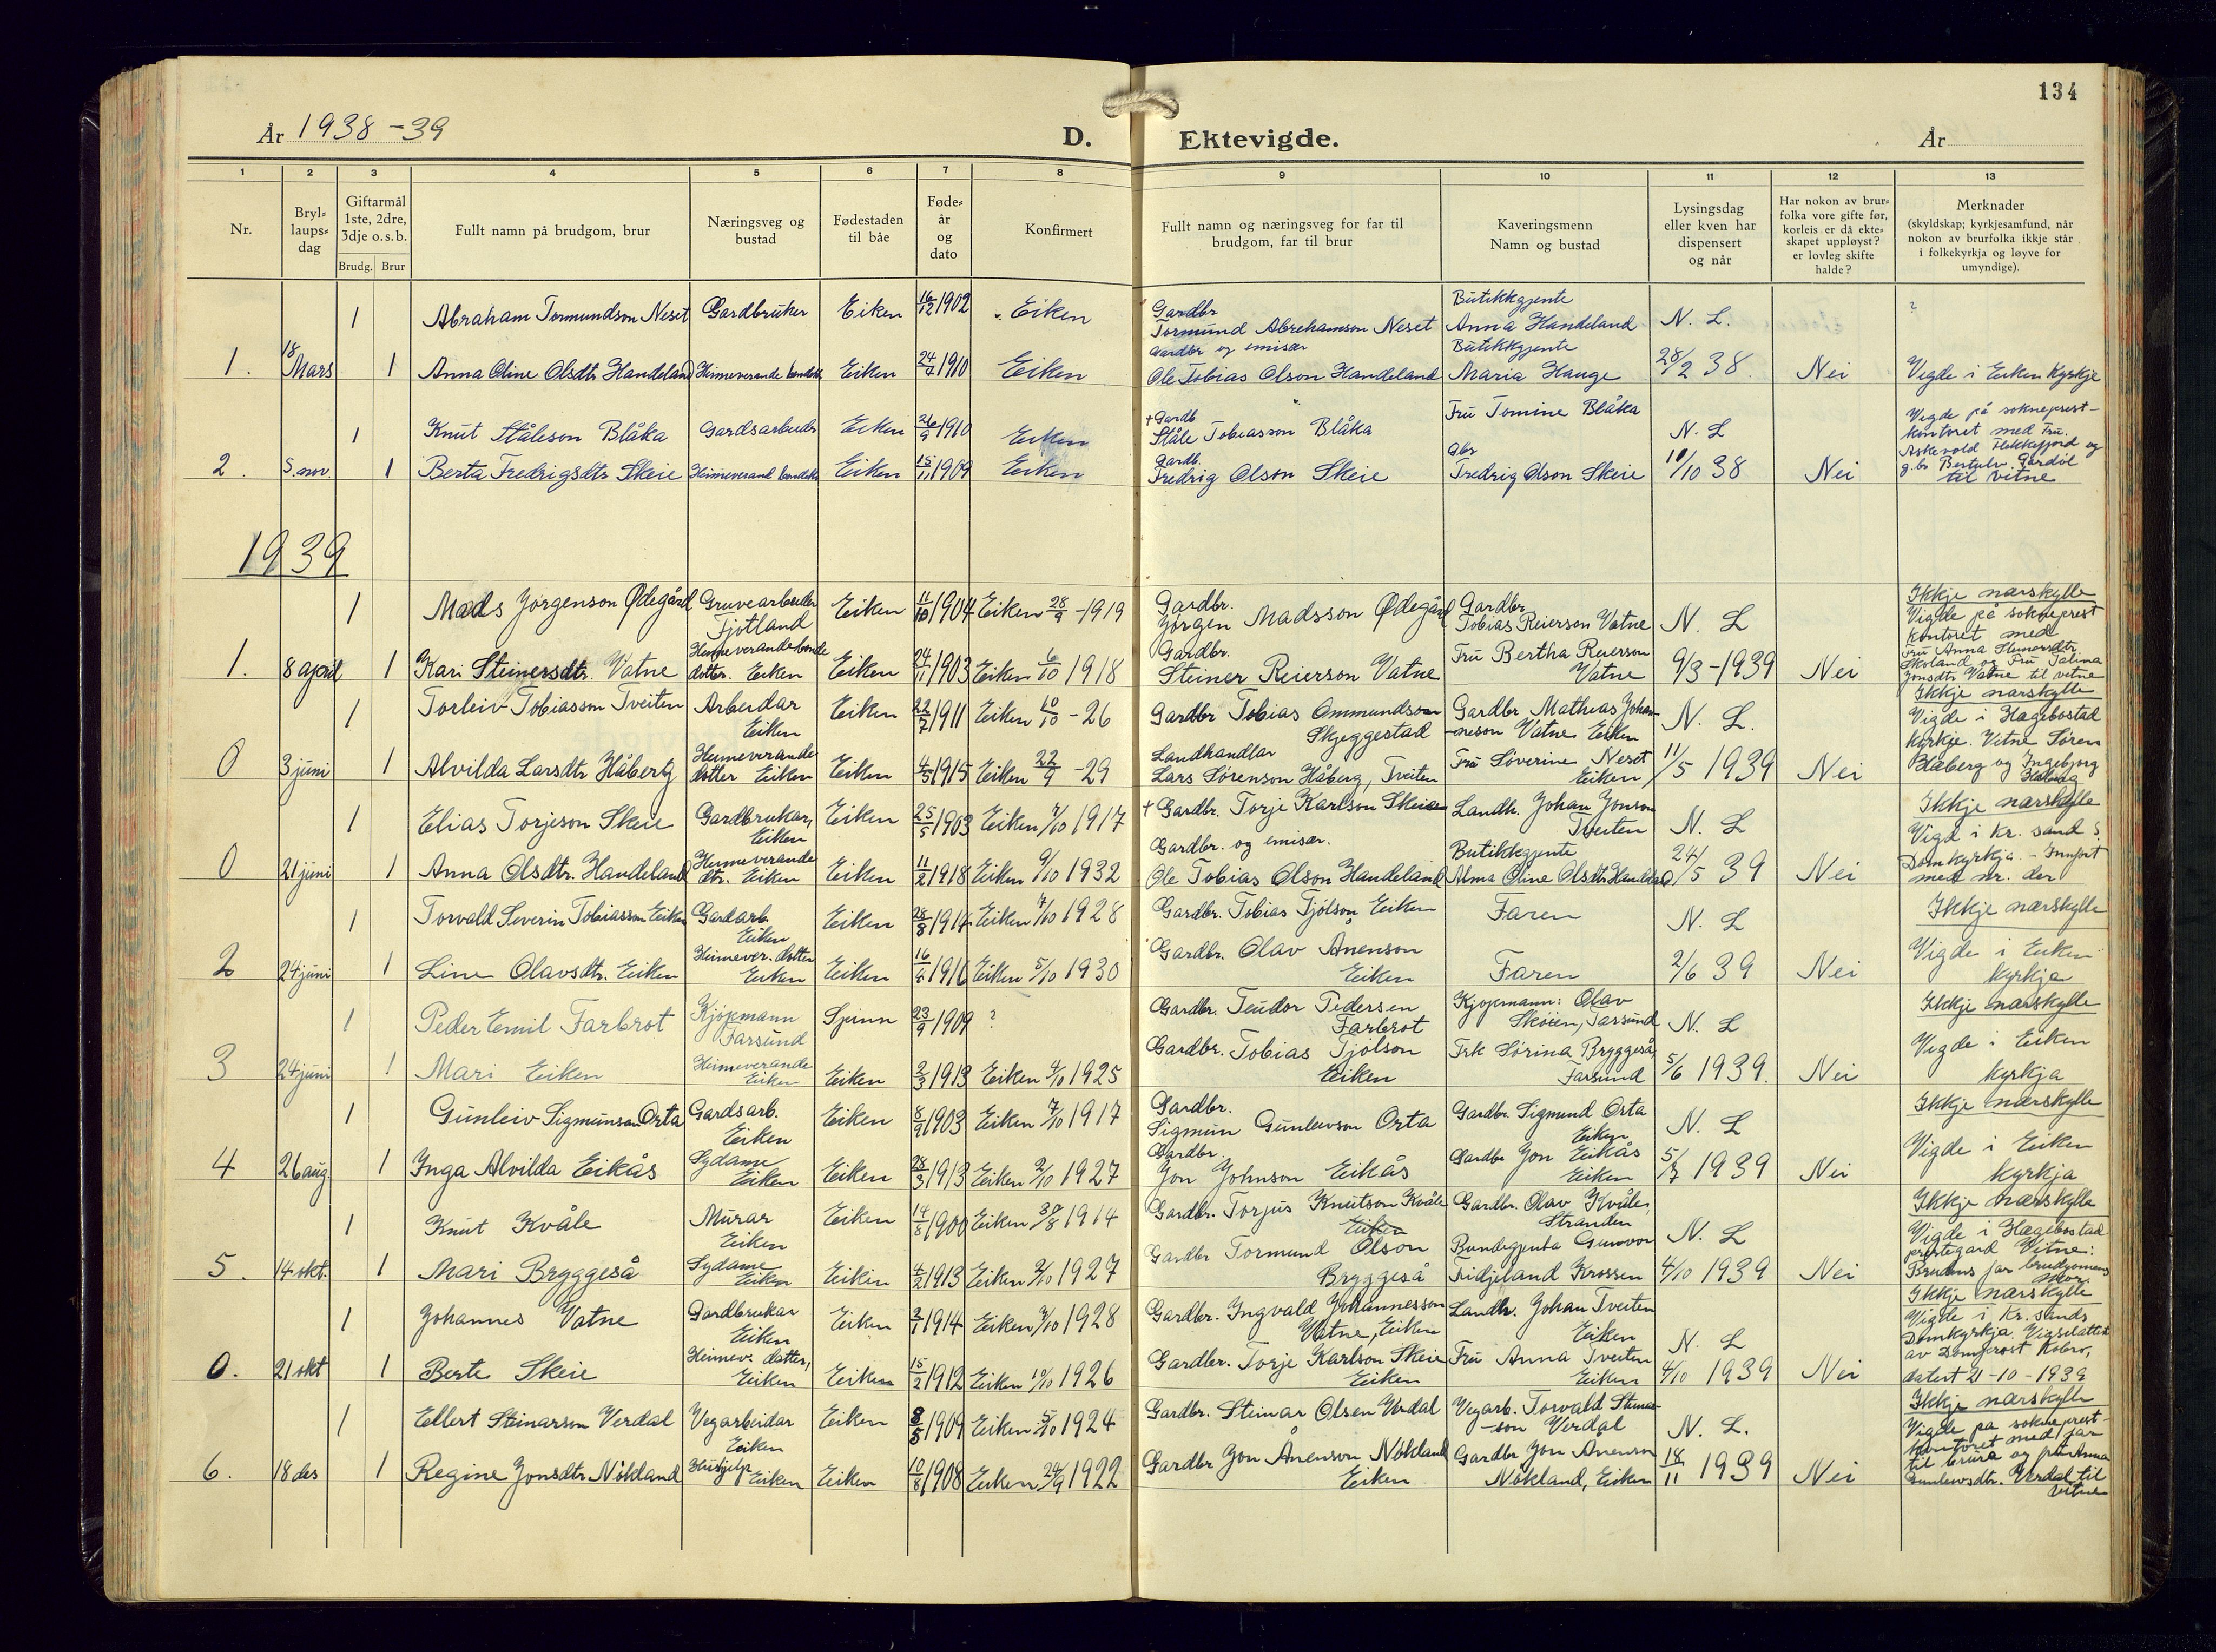 134
År 1938-39
D. Ektevigde.
År
1 2 3 4 5 6 7 8 9 10 11 12 13
Nr.
Bryl-
laups-
dag
Giftarmål
1ste, 2dre,
3dje o.s.b.
Brudg. Brur
Fullt namn på brudgom, brur
Næringsveg og
bustad
Fødestaden
til båe
Føde-
år
og
dato
Konfirmert
Fullt namn og næringsveg for far til
brudgom, far til brur
Kaveringsmenn
Namn og bustad
Lysingsdag
eller kven har
dispensert
og når
Har nokon av brur-
folka vore gifte før,
korleis er då ekte-
skapet uppløyst?
er lovleg skifte
halde?
Merknader
(skyldskap; kyrkjesamfund, når
nokon av brurfolka ikkje står
i folkekyrkja og løyve for
umyndige).
1 Abraham Tormundson Neset Gardbruker Eiken 16/12 1902 Eiken
Gardbr
Tormund Abrehamson Neset
Butikkgjente
Anna Handeland
N. L. ?
1. 18 Mars 1 Anna Oline Olsdtr Handeland Heimeverande bondedtr Eiken 24/4 1910 Eiken
Gardbr og emisær
Ole Tobias Olson Handeland
Butikkgjente
Maria Hauge
28/2 38. Nei Vigde i Eiken Kyrkje
1 Knut Ståleson Blåka Gardsarbeider Eiken 26/9 1910 Eiken
+ Gardb
Ståle Tobiasson Blåka
Fru Tomine Blåka
N. L
2. 5. nov. 1 Berta Fredrigsdtr Skeie Heimeverand bondedtr Eiken 15/7 1909 Eiken
Gardb.
Fredrig Olson Skeie
Gbr
Fredrig Olson Skeie
10/10 38 Nei
Vigde på sokneprest-
kontoret med Fru.
Askevold Flekkefjord og
g.br Bertulv Gardöl
til vitne
1939
1 Mads Jørgenson Ødegård
Gruvearbeider
Fjotland
Eiken 11/10 1904 Eiken 28/9 -1919
Gardbr.
Jørgen Madsson Ødegård
Gardbr
Tobias Reierson Vatne
N. L
Ikkje nærskylle
Vigde på sokneprest
kontoret med
Fru Anna Steinersdtr.
Skoland og Fru Talina
Jonsdtr Vatne til vitne
1. 8 april 1 Kari Steinersdtr. Vatne
Heimeverande bonde
dotter. Eiken
Eiken 24/11 1903 Eiken 6/10 1918
Gardbr.
Steiner Reierson Vatne
Fru Bertha Reierson
Vatne
9/3 -1939 Nei
1 Torleiv Tobiasson Tveiten
Arbeidar
Eiken
Eiken 22/7 1911 Eiken 10/10 -26
Gardbr Tobias Ommundson
Skjeggestad
Gardbr Mathias Johan-
neson Vatne Eiken
N. L.
Ikkje nærskylle
Vigde i Hægebostad
kyrkje. Vitne Søren
Håberg og Ingebjorg
Håberg
0 3 juni 1 Alvilda Larsdtr Håberg
Heimeverande
dotter Eiken
Eiken 4/5 1915 Eiken 22/9 -29
Landhandlar
Lars Sørenson Håberg, Tveiten
Fru Søverine Neset
Eiken
11/5 1939 Nei
1 Elias Torjeson Skeie
Gardbrukar,
Eiken
Eiken 25/5 1903 Eiken 7/10 1917
+ Gardbr. Torje Karlson Skeie
Landh. Johan Jonson
Tveiten
N. L
Ikkje nærskylle
Vigd i Kr. sand S.
Domkyrkja. - Innført
med nr. der
0 21 juni 1 Anna Olsdtr. Handeland
Heimeverande
dtr. Eiken
Eiken 11/2 1918 Eiken 9/10 1932
Gardbr. og emisær.
Ole Tobias Olson Handeland
Butikkgjente
Alma Oline Olsdtr Handeland
24/5 39 Nei
1 Torvald Severin Tobiasson Eiken
Gardarb.
Eiken
Eiken 28/8 1914 Eiken 7/10 1928
Gardbr. Tobias Tjølson Eiken
Faren
N. L
Ikkje nærskylle
2 24 juni 1 Line Olavsdtr. Eiken
Heimever. dotter
Eiken
Eiken 16/4 1916 Eiken 5/10 1930
Gardbr. Olav Ånenson
Eiken
Faren
2/6 39 Nei
Vigde i Eiken
kyrkja
1 Peder Emil Farbrot
Kjøpmann
Farsund
Spinn 23/9 1909 ?
Gardbr. Teudor Pedersen
Farbrot
Kjøpmann: Olav
Skøien, Farsund
N. L
Ikkje nærskylle
3 24 juni 1 Mari Eiken
Heimeverande
Eiken
Eiken 2/3 1913 Eiken 4/10 1925
Gardbr. Tobias Tjølson
Eiken
Frk Sørina Bryggeså
Farsund
5/6 1939. Nei
Vigde i Eiken
kyrkja
1 Gunleiv Sigmunson Orta
Gardsarb.
Eiken
Eiken 8/9 1903 Eiken 7/10 1917
Gardbr.
Sigmun Gunleivson Orta
Gardbr. Sigmund Orta
Eiken
N. L
Ikkje nærskylle
4 26 aug. 1 Inga Alvilda Eikås
Sydame
Eiken
Eiken 28/3 1913 Eiken 2/10 1927
Gardbr.
Jon Johnson Eikås
Gardbr Jon Eikås
Eiken
5/7 1939 Nei
Vigde i Eiken
kyrkja
1 Knut Kvåle
Murar
Eiken
Eiken 14/8 1900 Eiken 30/8 1914
Gardbr. Torjus Knutson Kvåle
Eiken
Gardbr. Olav Kvåle,
Stranden
N. L
Ikkje nærskylle
Vigde i Hægebostad
prestegard Vitne:
Brudens far brudgomens
mor.
5. 14 okt. 1 Mari Bryggeså
Sydame
Eiken
Eiken 4/2 1913 Eiken 2/10 1927
Gardbr Tormund Olson
Bryggeså
Bondegjenta Gunvor
Fridjeland Krossen
4/10 1939 Nei
1 Johannes Vatne
Gardbrukar
Eiken
Eiken 2/1 1914 Eiken 7/10 1928
Gardbr. Ingvald Johannesson
Vatne, Eiken
Landh. Johan Tveiten
Eiken
N. L
Ikkje nærskylle
Vigde i Kr. sands
Domkyrkja. Vigselattest
av Domprost Kobro,
datert 21-10-1939
0. 21 okt 1 Berte Skeie
Heimev. datter,
Eiken
Eiken 15/2 1912 Eiken 10/10 1926
Gardbr. Torje Karlson Skeie
Eiken
Fru Anna Tveiten
Eiken
4/10 1939 Nei
1 Ellert Steinarson Verdal
Vegarbeidar
Eiken
Eiken 8/5 1909 Eiken 5/10 1924
Gardbr. Steinar Olsen Verdal
Vegarb. Torvald Steinar-
son Verdal
N. L.
Ikkje nærskylle
Vigde på sokneprest-
kontoret med far
til brura og frk Anna
Gunleivsdtr. Verdal til
vitne
6. 18 des 1 Regine Jonsdtr Nökland
Hushjelp
Eiken
Eiken 10/8 1908 Eiken 24/9 1922
Gardbr Jon Ånenson Nökland
Eiken
Gardbr Jon Ånenson
Nökland, Eiken
18/11 1939 Nei